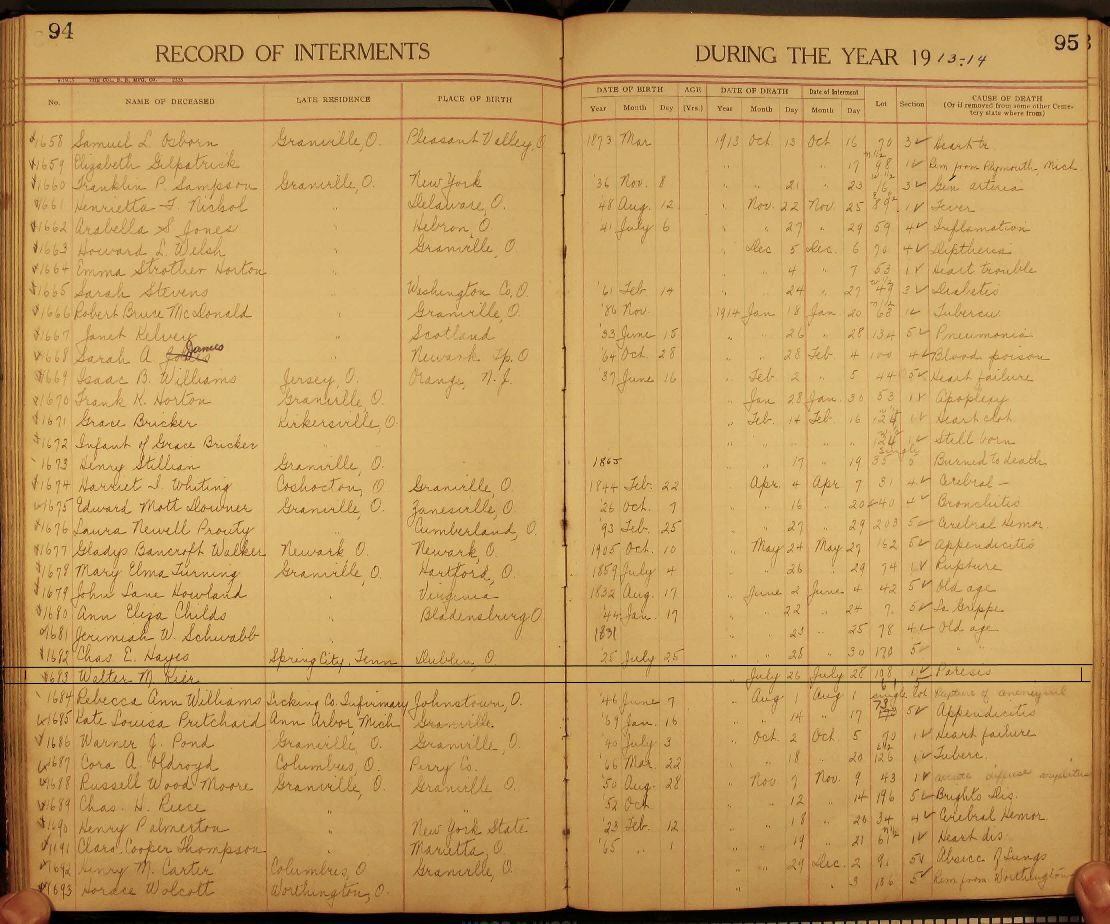 94
RECORD OF INTERMENTS
DURING THE YEAR 1913-14
95
No. NAME OF DECEASED LATE RESIDENCE PLACE OF BIRTH DATE OF BIRTH AGE DATE OF DEATH Date of Interment Lot Section CAUSE OF DEATH
Year Month Day (Yrs.) Year Month Day Month Day (Or if removed from some other Cemetery state where from)
1658 Samuel L. Osborn Granville, O. Pleasant Valley, O 1873 Mar 1913 Oct 13 Oct 16 70 3 Heart tr.
1659 Elizabeth Gilpatrick 17 98 1 Rem. from Plymouth Mich
1660 Franklin P. Sampson Granville, O. New York '36 Nov. 8 " " 21 " 23 3 Gen arteria
1661 Henrietta F. Nichol " Delaware, O. 48 Aug. 12 " Nov. 22 Nov. 25 1 Fever
1662 Arabella S Jones " Hebron, O. 41 July 6 " " 27 " 29 59 4 Inflamation
1663 Howard L. Welsh " Granville, O. " Dec 5 Dec. 6 70 4 Diptheria
1664 Emma Strother Horton " " " 4 " 7 53 1 Heart trouble
1665 Sarah Stevens " Washington Co, O '61 Feb 14 " " 24 " 27 3 Diabetis
1666 Robert Bruce McDonald " Granville, O. '86 Nov. 1914 Jan 18 Jan 20 63 1 Tubercu
1667 Janet Kelvey " Scotland '33 June 15 " " 26 " 28 134 5 Pneumonia
1668 Sarah A James " Newark Tp. O '64 Oct. 28 " " 28 Feb 4 100 4 Blood poison
1669 Isaac B. Williams Jersey, O. Orange, N.J. '37 June 16 " Feb 2 " 5 44 5 Heart failure
1670 Frank K. Horton Granville O. " Jan 28 Jan. 30 53 1 Apoplexy
1671 Grace Bricker Kirkersville, O. " Feb. 14 Feb 16 124 1 Heart clot
1672 Infant of Grace Bricker " " " " " " 124 1 Still born
1673 Henry Stillian Granville, O. 1865 " " 17 " 19 Single 35 5 Burned to death
1674 Harriet I. Whiting Coshocton, O Granville, O. 1844 Feb. 22 " Apr. 4 Apr 7 31 4 Cerebral -
1675 Edward Mott Downer Granville, O. Zanesville, O. 26 Oct. 7 " " 16 " 20 40 4 Bronchitis
1676 Laura Newell Prouty " Cumberland, O. '93 Feb. 25 " " 27 " 29 203 5 Cerebral Hemor.
1677 Gladys Bancroft Walker Newark O. Newark O. 1905 Oct. 10 " May 24 May 27 162 5 Appendicitis
1678 Mary Elma Turning Granville, O. Hartford, O. 1859 July 4 " " 26 " 29 74 1 Rupture
1679 John Lane Howland " Virginia 1832 Aug. 17 " June 2 June 4 42 5 Old age
1680 Ann Eliza Childs " Bladensburg O '44 Jan. 17 " " 22 " 24 7 5 La Grippe
1681 Jerimiah W. Schwabb " 1831 " " 23 " 25 78 4 Old age
1682 Chas E. Hayes Spring City, Tenn Dublin, O. 25 July 25 " " 28 " 30 170 5 " "
1683 Walter M. Kier " July 26 July 28 108 1 Paresis
1684 Rebecca Ann Williams Licking Co. Infirmary Johnstown, O. '46 June 7 " Aug 1 Aug 1 single lot Rupture of
1685 Kate Louisa Pritchard Ann Arbor, Mich Granville '69 Jan. 16 " " 14 " 17 5 Appendicitis
1686 Warner J. Pond Granville, O. Granville, O. '40 July 3 " Oct. 2 Oct. 5 70 1 Heart failure
1687 Cora A. Oldroyd Columbus, O. Perry Co. '66 Mar. 22 " " 18 " 20 126 1 Tuberc.
1688 Russell Wood Moore Granville, O. Granville O. '50 Aug. 28 " Nov 7 Nov. 9 43 1 acute
1689 Chas. H. Reece " " '52 Oct " " 12 " 14 196 5 Brights Dis.
1690 Henry Palmerton " New York State '23 Feb. 12 " " 18 " 20 34 4 Cerebral Hemor.
1691 Clara Cooper Thompson " Marietta, O. '55 " 1 " " 19 " 21 67 1 Heart dis.
1692 Henry M. Carter Columbus, O Granville, O. " " 29 Dec. 2 9 5 Abscc of Lungs
1693 Horace Wolcott Worthington, O. " " 3 186 5 Rem from Worthington